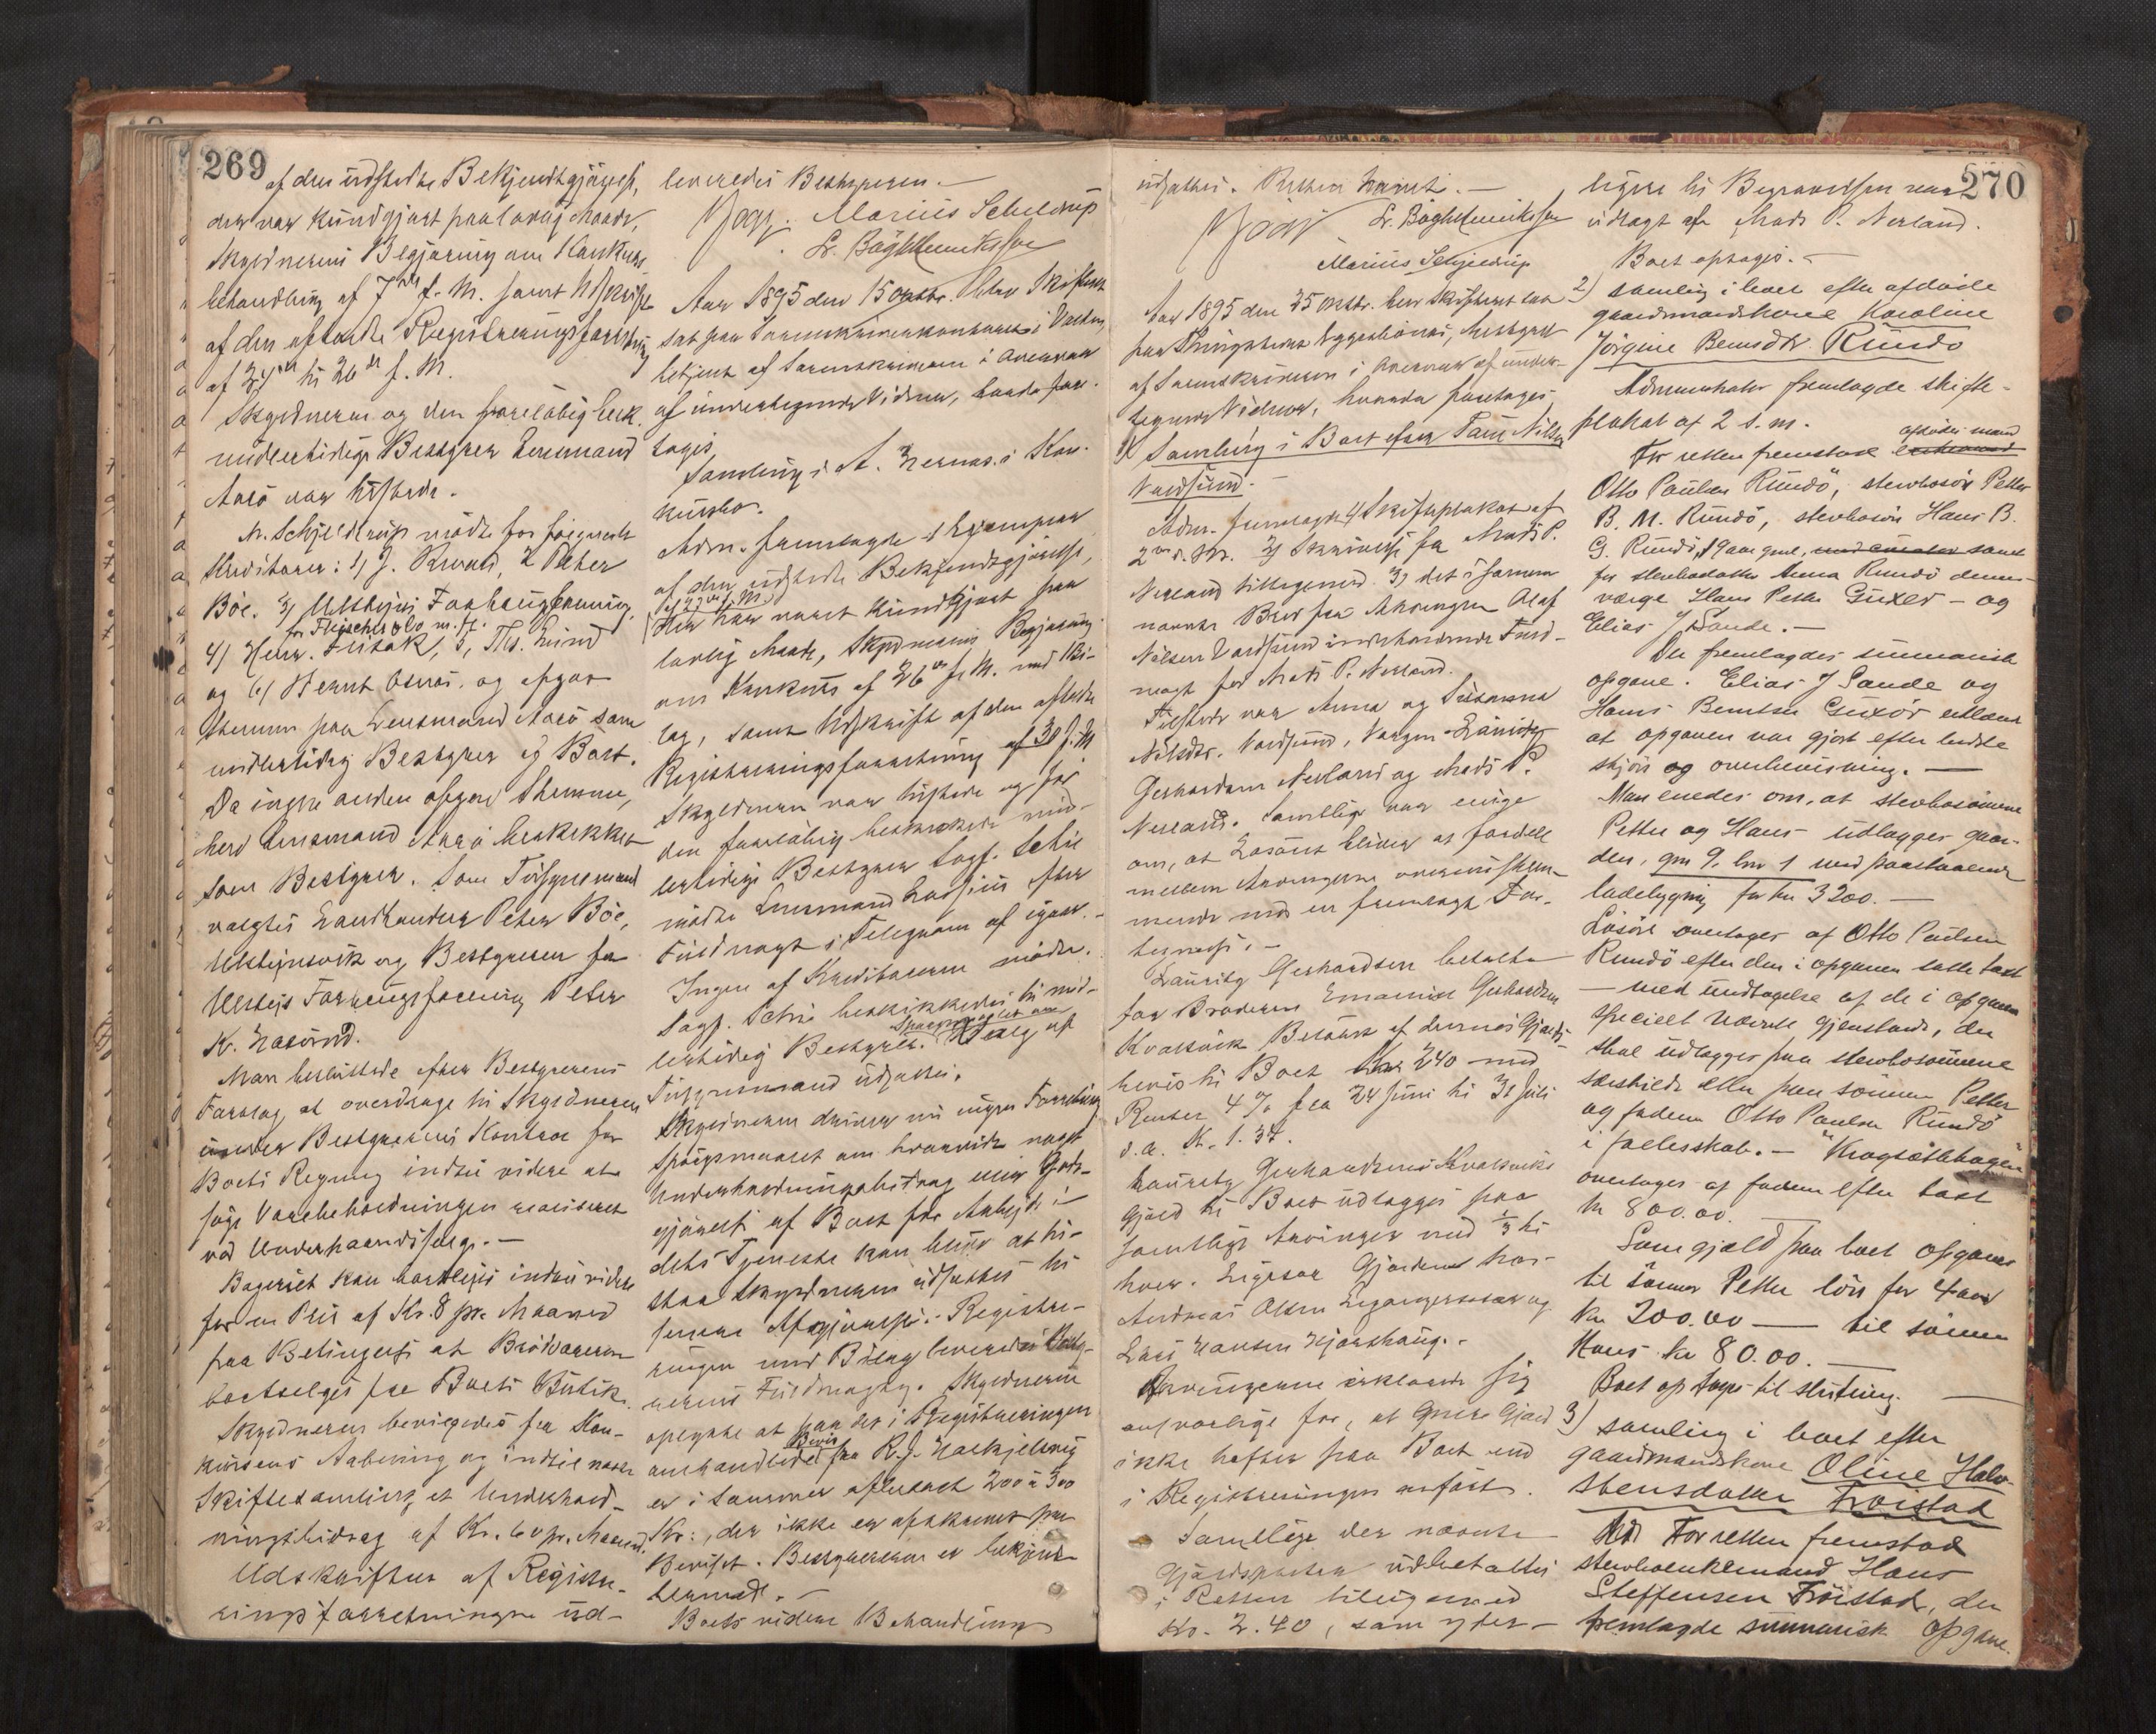 269
af den udstedte Bekjendtgjørelse,
der var kundgjort paa lovlig Maade,
Skyldnerens Begjæring om Konkurs
behandling af 7de f. M. samt Udskrift
af den afholdte Registreringsforretning
af 24de til 26de f. M.
Skyldneren og den foreløbig besk.
midlertidige Bestyrer Lensmand
Aarø var tilstede.
M. Schjelderup mødte for følgende
Kreditorer: 1) J. 2 Peter
Böe. 3) Ulstejns Forbrugsforening
for Fleischer & Co m. fl.
4) Herm. Frisak, 5, Ths. Lund
og 6) Bernt Osnæs. og afgav
Stemme paa Lensmand Aarø som
midlertidig Bestyrer af Boet.
Da ingen anden afgav Stemme,
blev Lensmand Aarø beskikket
som Bestyrer. Som Tilsynsmand
valgtes Landhandler Peter Böe,
Ulstejnsvik og Bestyreren for
Ulstejns Forbrugsforening Peter
K. Hasund.
Man besluttede efter Bestyrerens
Forslag at overdrage til Skyldneren
under Bestyrerens Kontrol for
Boets Regning indtil videre at
søge Varebeholdningen realiseret
ved Underhaandssalg. —
Bageriet kan bortlejes indtil videre
for en Pris af Kr. 8 pr. Maaned
paa Betingelse at Brødvarerne
bortselges fra Boets Butik.
Skyldneren bevilgedes fra Kon-
kursens Aabning og indtil næste
Skiftesamling et Underhold-
ningsbidrag af Kr. 60 pr. Maaned.
Udskriften af Registre-
ringsforretningen ud-
leveredes Bestyreren. —
Marius Schelderup
L. Bøgh Henrikssen
Aar 1895 den 15 oktbr. blev Skifteret
sat paa Sorenskriverkontoret i Volden
betjent af Sorenskriveren i Overvær
af undertegnede Vidner, hvorda fore-
toges
Samling i A. i Kon-
kursbo.
Adm. fremlagde 1 Exemplar
af den udstedte Bekjendtgjørelse,
af 27de f. M.
der har været kundgjort paa
lovlig Maade, Skyldnerens Begjæring
om Konkurs af 26de f. M. med Bi-
lag, samt Udskrift af den afholdte
Registreringsforretning af 30 f. M.
Skyldneren var tilstede og for
den foreløbig beskikkede mid-
lertidige Bestyrer Sagf.
mødte Lensmand efter
Fuldmagt i Telegram af igaar. -
Ingen af Kreditorerne mødte.
Sagf. beskikkedes til mid-
lertidig Bestyrer. Spørgsmaalet om Valg af
Tilsynsmand udsattes.
Skyldneren driver nu ingen Forretning
Spørgsmaalet om hvorvidt noget
Underholdningsbidrag eller Godt-
gjørelse af Boet for Arbejde i
dets Tjeneste kan blive at til-
staa Skyldneren udsattes til
senere Afgjørelse. - Registre-
ringen med Bilag leveredes Besty-
rerens Fuldmægtig. Skyldneren
oplyste at paa det i Registreringen
omhandlede Bevis fra R. J.
er i Sommer afbetalt 200 à 300
Kr:, der ikke er afskrevet paa
Beviset. Bestyreren er bekjendt
hermed. —
Boets videre Behandling
270
udsattes. Retten hævet. —
L. Bøgh Henrikssen
Marius Schjelderup
Aar 1895 den 25 Oktbr. blev Skifteret sat
paa Thingstuen Eggesbønes, bestyret
af Sorenskriveren i Overvær af under-
tegnede Vidner, hvorda foretoges
1) Samling i Boet efter Nilsen
Vardsund.
Adm. fremlagde 1) Skifteplakat af
2den d. M. 2) Skrivelse fra Mads P.
Nerland 3) det i samme
nævnte Brev fra Arvingen Olaf
Nilsen Vardsund indeholdende Fuld-
magt for Mads P. Nerland.
Tilstede var Anna og Susanna
Nilsdtr. Vardsund, Værgen Lauritz
Gerhardsen Nerland og Mads P.
Nerland. Samtlige var enige
om, at Løsøret bliver at fordele
mellem Arvingerne overensstem-
mende med en fremlagt For-
tegnelse. —
Lauritz Gerhardsen betalte
for Broderen Emanuel Gerhardsen
Kvalsvik Beløbet af dennes Gjælds-
bevis til Boet Kr 240 med
Renter 4 % fra 24 Juni til 31 Juli
d. a. K. 1.37.
Lauritz Gerhardsens Kvalsviks
Gjæld til Boet udlægges paa
samtlige Arvinger med 1/3 til
hver. Ligesaa Gjælden hos
Andreas Olsen og
Lars Hansen
Arvingerne erklærede sig
ansvarlige for, at anden Gjæld
ikke hefter paa Boet end
i Registreringen anført.
Samtlige der nævnte
Gjældsposter udbetaltes
i Retten tilligemed
Kr. 2.40, som yder-
ligere til Begravelsen var
udlagt af Mads P. Nerland.
Boet optoges. —
2) samling i boet efter afdøde
gaardmandskone Karoline
Jørgine Bernsdtr. Rundö
Administrator fremlagde skifte-
plakat af 2 d. m.
For retten fremstod enkemand afdødes mand
Otto Paulsen Rundö, sterbosøn Petter
B. M. Rundö, sterbosøn Hans B.
G. Rundö, 19 aar gml, med curator samt
for sterbodatter Anna Rundö dennes
værge Hans Petter Guxer – og
Elias J Sande. —
Der fremlagdes summarisk
opgave. Elias J Sande og
Hans Berntsen Guxör erklærte
at opgaven var gjort efter bedste
skjøn og overbevisning. —
Man enedes om, at sterbosønnerne
Petter og Hans udlægges gaar-
den, gm 9. bm 1 med paastaaende
ladebygning for kr 3200. —
Løsøre overtages af Otto Paulsen
Rundö efter den i opgaven satte taxt
— med undtagelse af de i opgaven
specielt nævnte gjenstande, der
skal udlægges paa sterbosønnerne
særskilt eller paa sønnen Petter
og faderen Otto Paulsen Rundö
i fællesskab. — "Krogsætehagen"
overtages af faderen efter taxt
kr 800.00. —
Som gjæld paa boet opgaves
til sønnen Petter løn for 4 aar
kr 200.00 — til sønnen
Hans kr 80.00. —
Boet optages til slutning. —
3) samling i boet efter
gaardmandskone Oline Halv-
stensdatter Frøistad
Adr For retten fremstod
sterboenkemand Hans
Steffensen Frøistad, der
fremlagde summarisk opgave.